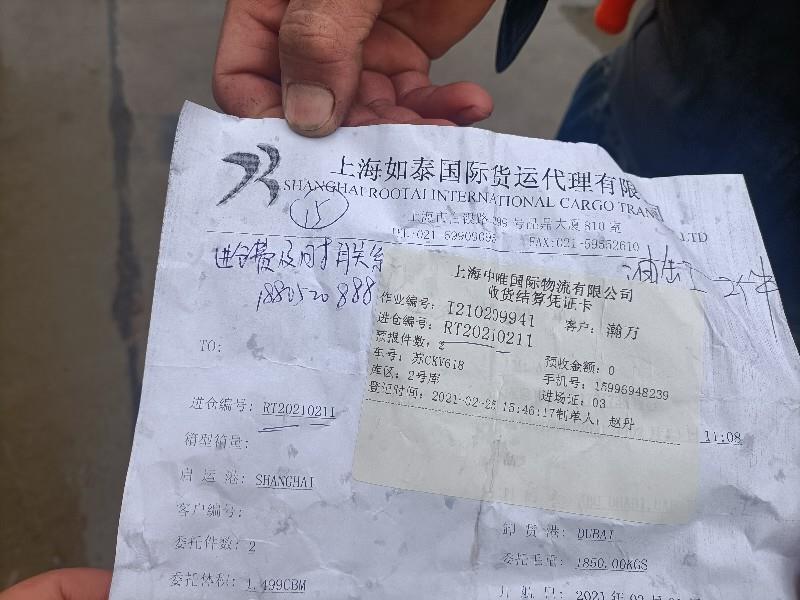 上海如泰国际货运代理有限
SHANGHAI ROOTAI INTERNATIONAL CARGO TRANS LTD
299号品品大厦810室
TEL:021-59909695 FAX:021-59552610
15
进仓费及时联系
上海中唯国际物流有限公司
收货结算凭证卡
作业编号: I210209941 客户: 瀚万
进仓编号: RT20210211
预报件数: 2 预收金额: 0
车号: 苏CKV618 手机号: 15996948239
库区: 2号库 进场证: 03
登记时间: 2021-02-25 15:46:17制单人: 赵丹
TO:
11:08
进仓编号: RT20210211
箱型箱量:
启运港: SHANGHAI
客户编号:
卸货港: DUBAI
委托件数: 2 委托毛重: 1850.00KGS
委托体积: 1.499CBM